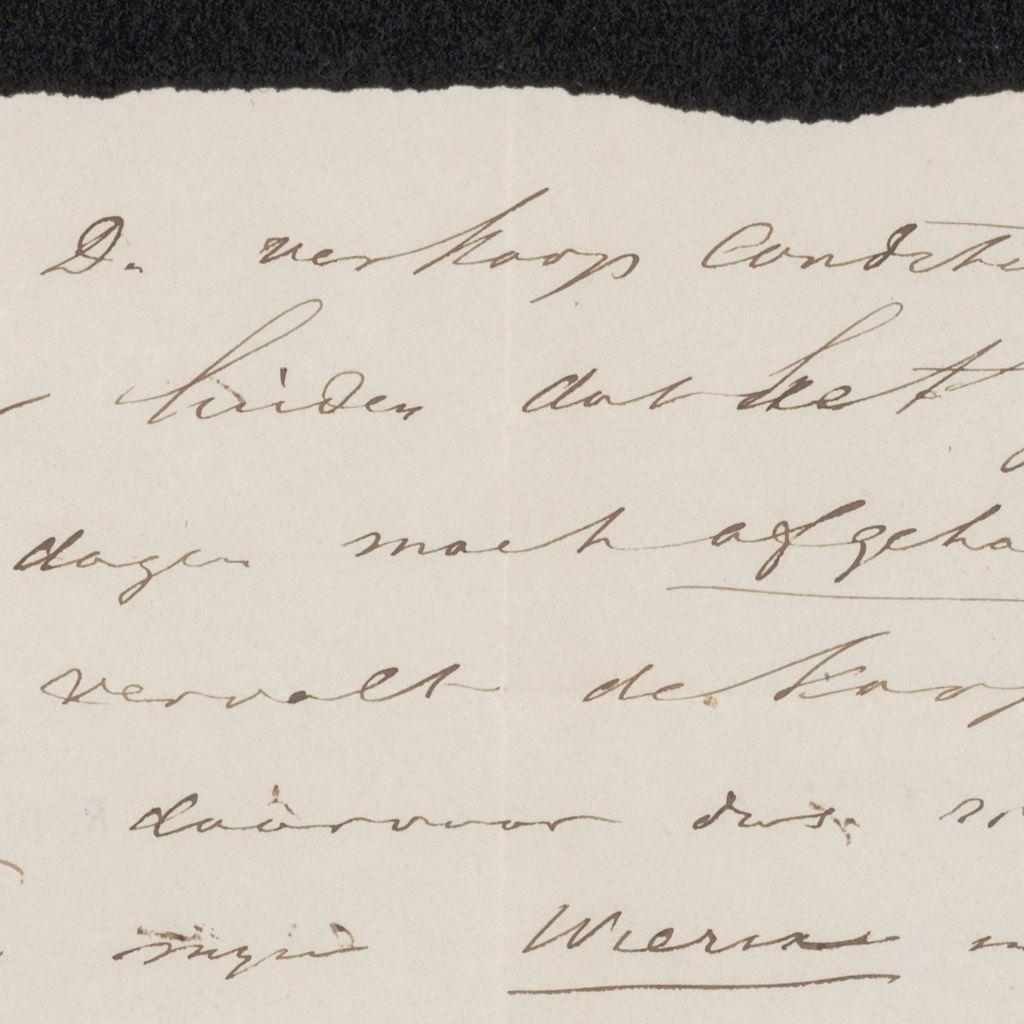 D. verkoop Conditi
luiden dat het
dagen moet afgeha
vervalt de koop
daarvoor dus
mijn Wierix